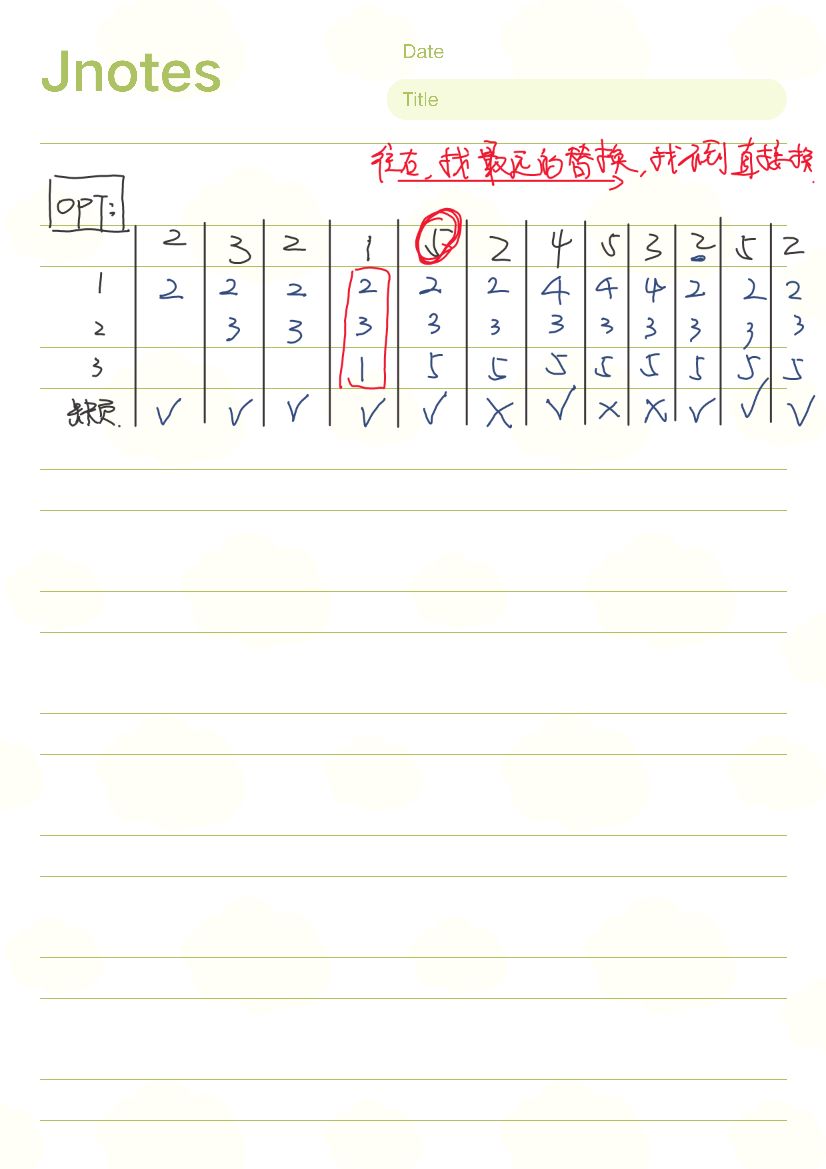 Jnotes
Date
Title
往右，找最远的替换，找不到直接换.
OPT:
2 3 2 1 5 2 4 5 3 2 5 2
1 2 2 2 2 2 2 4 4 4 2 2 2
2 3 3 3 3 3 3 3 3 3 3 3
3 1 5 5 5 5 5 5 5 5
缺页. √ √ √ √ √ × √ × × √ √ √